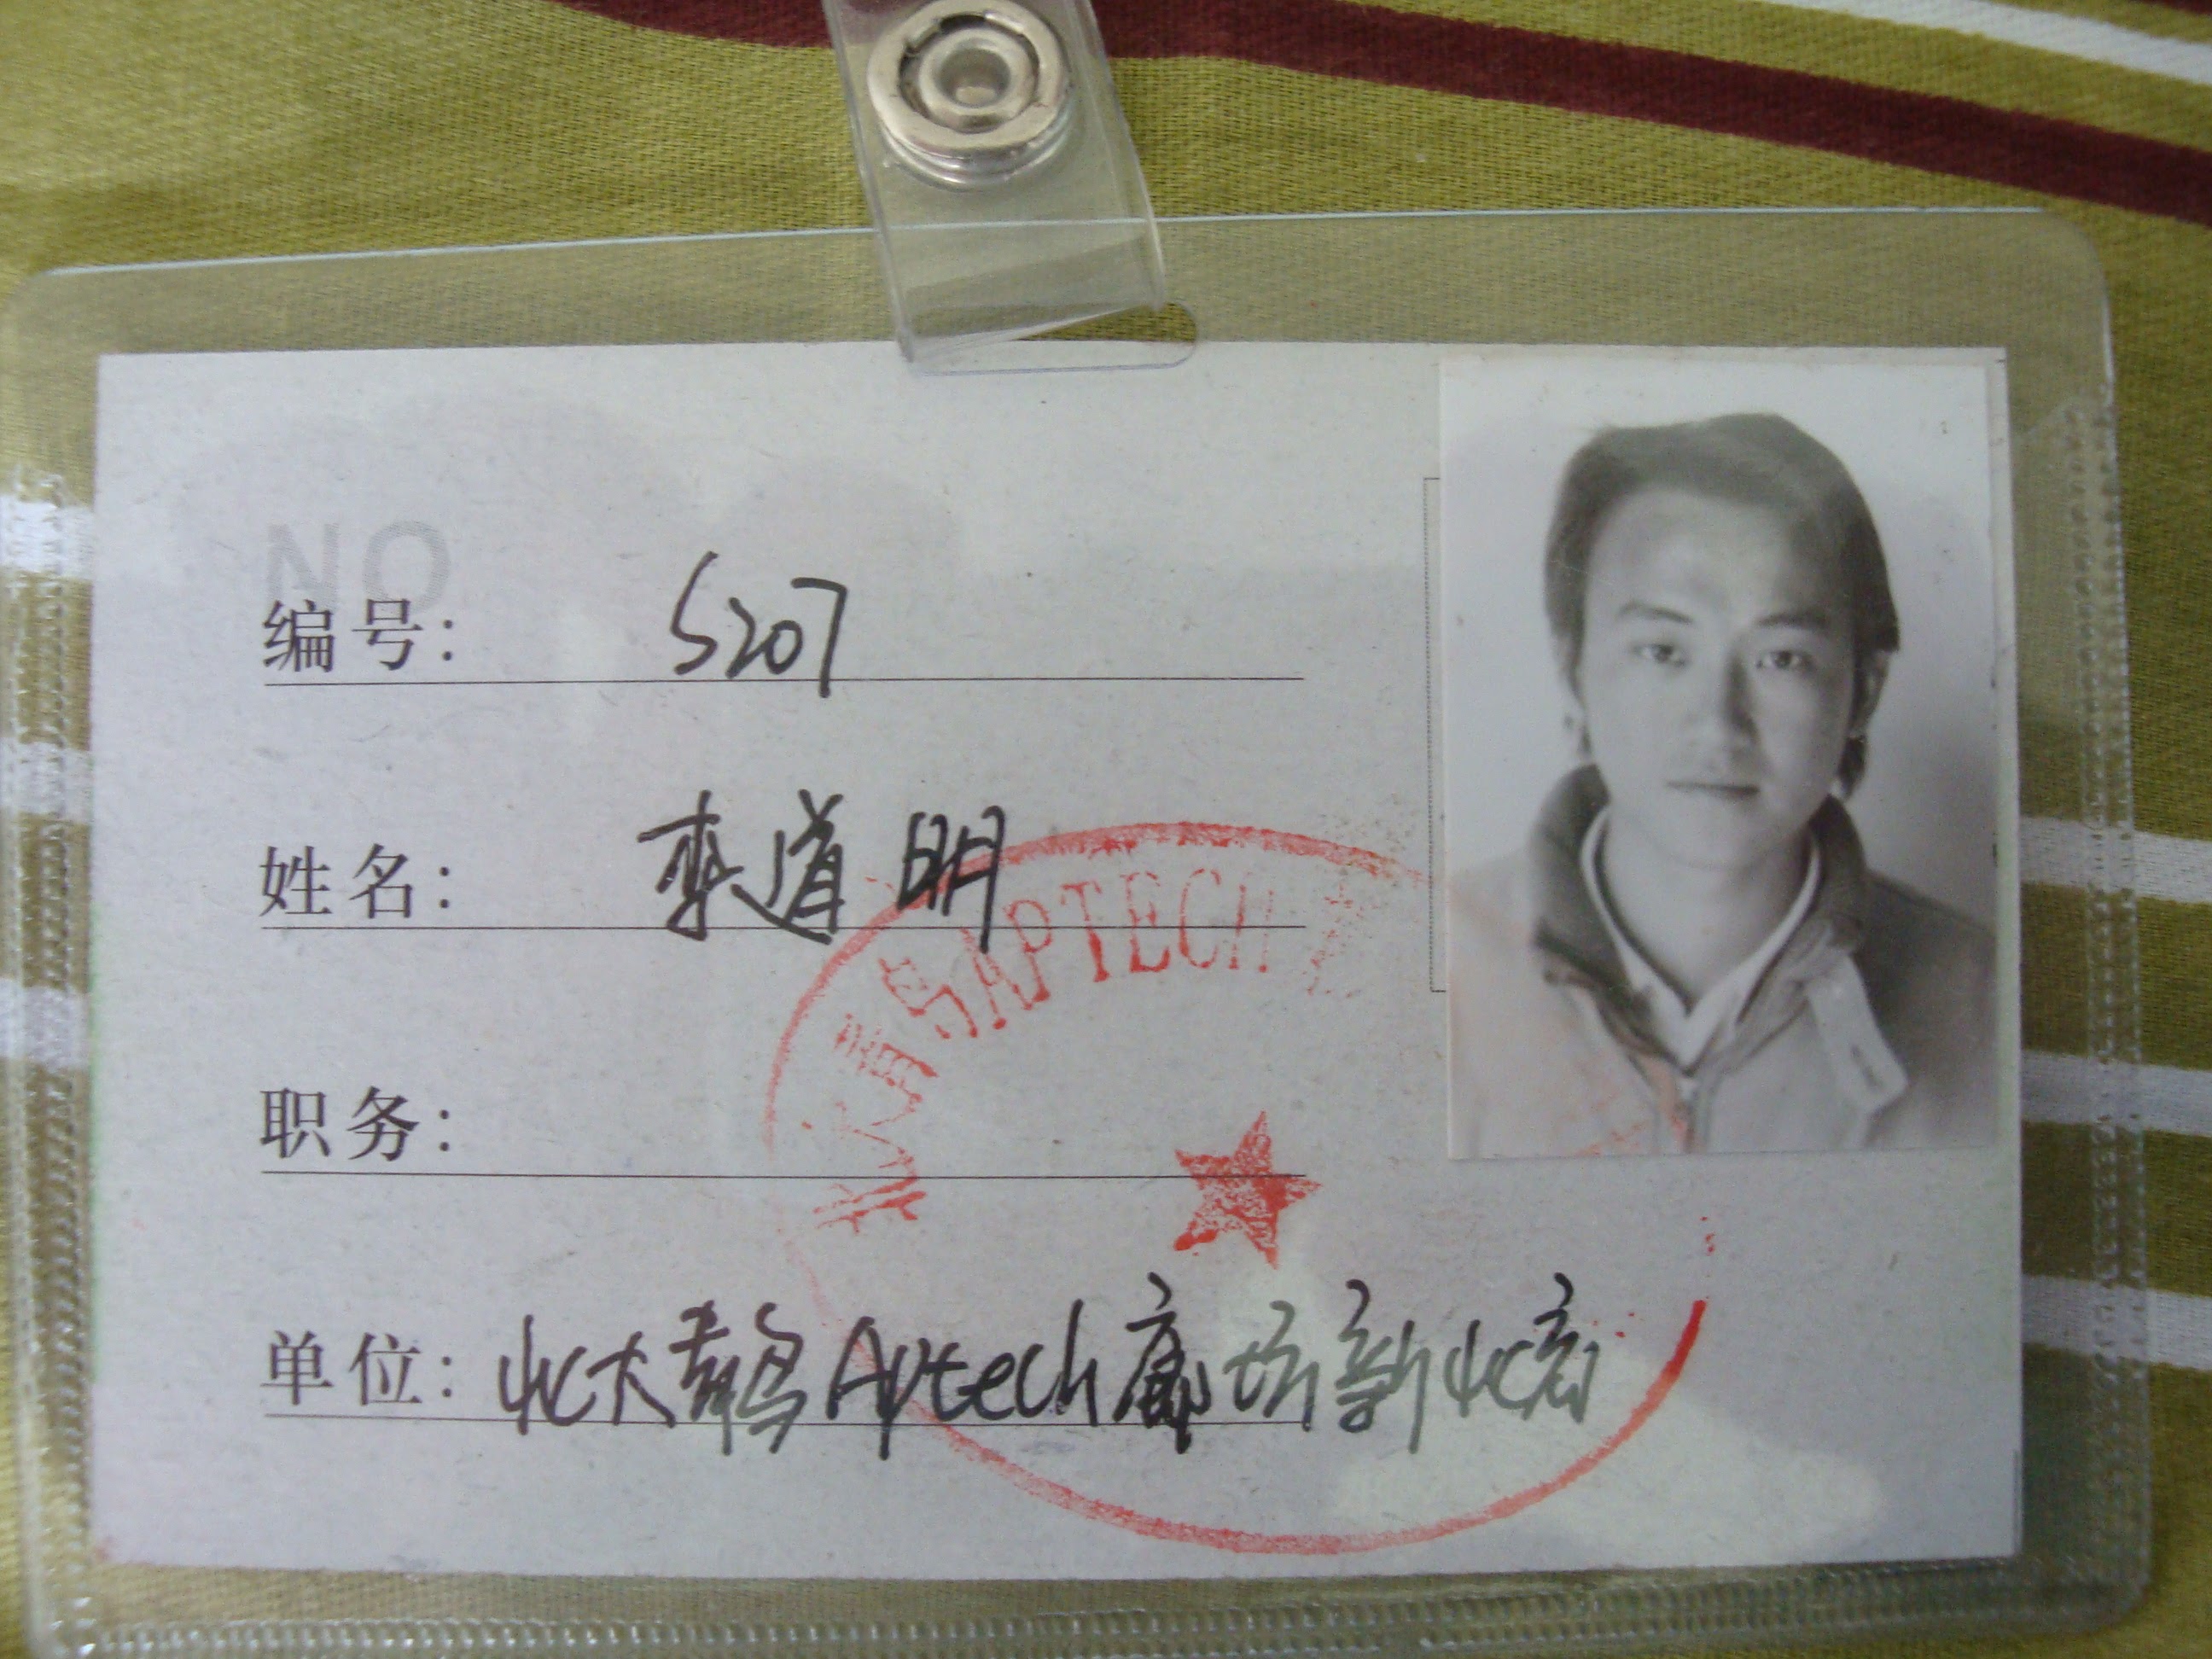 NO
编号: 5207
姓名: 栾道明
职务:
单位: 北大青鸟Aptech廊坊新北宏
北大青鸟APTECH